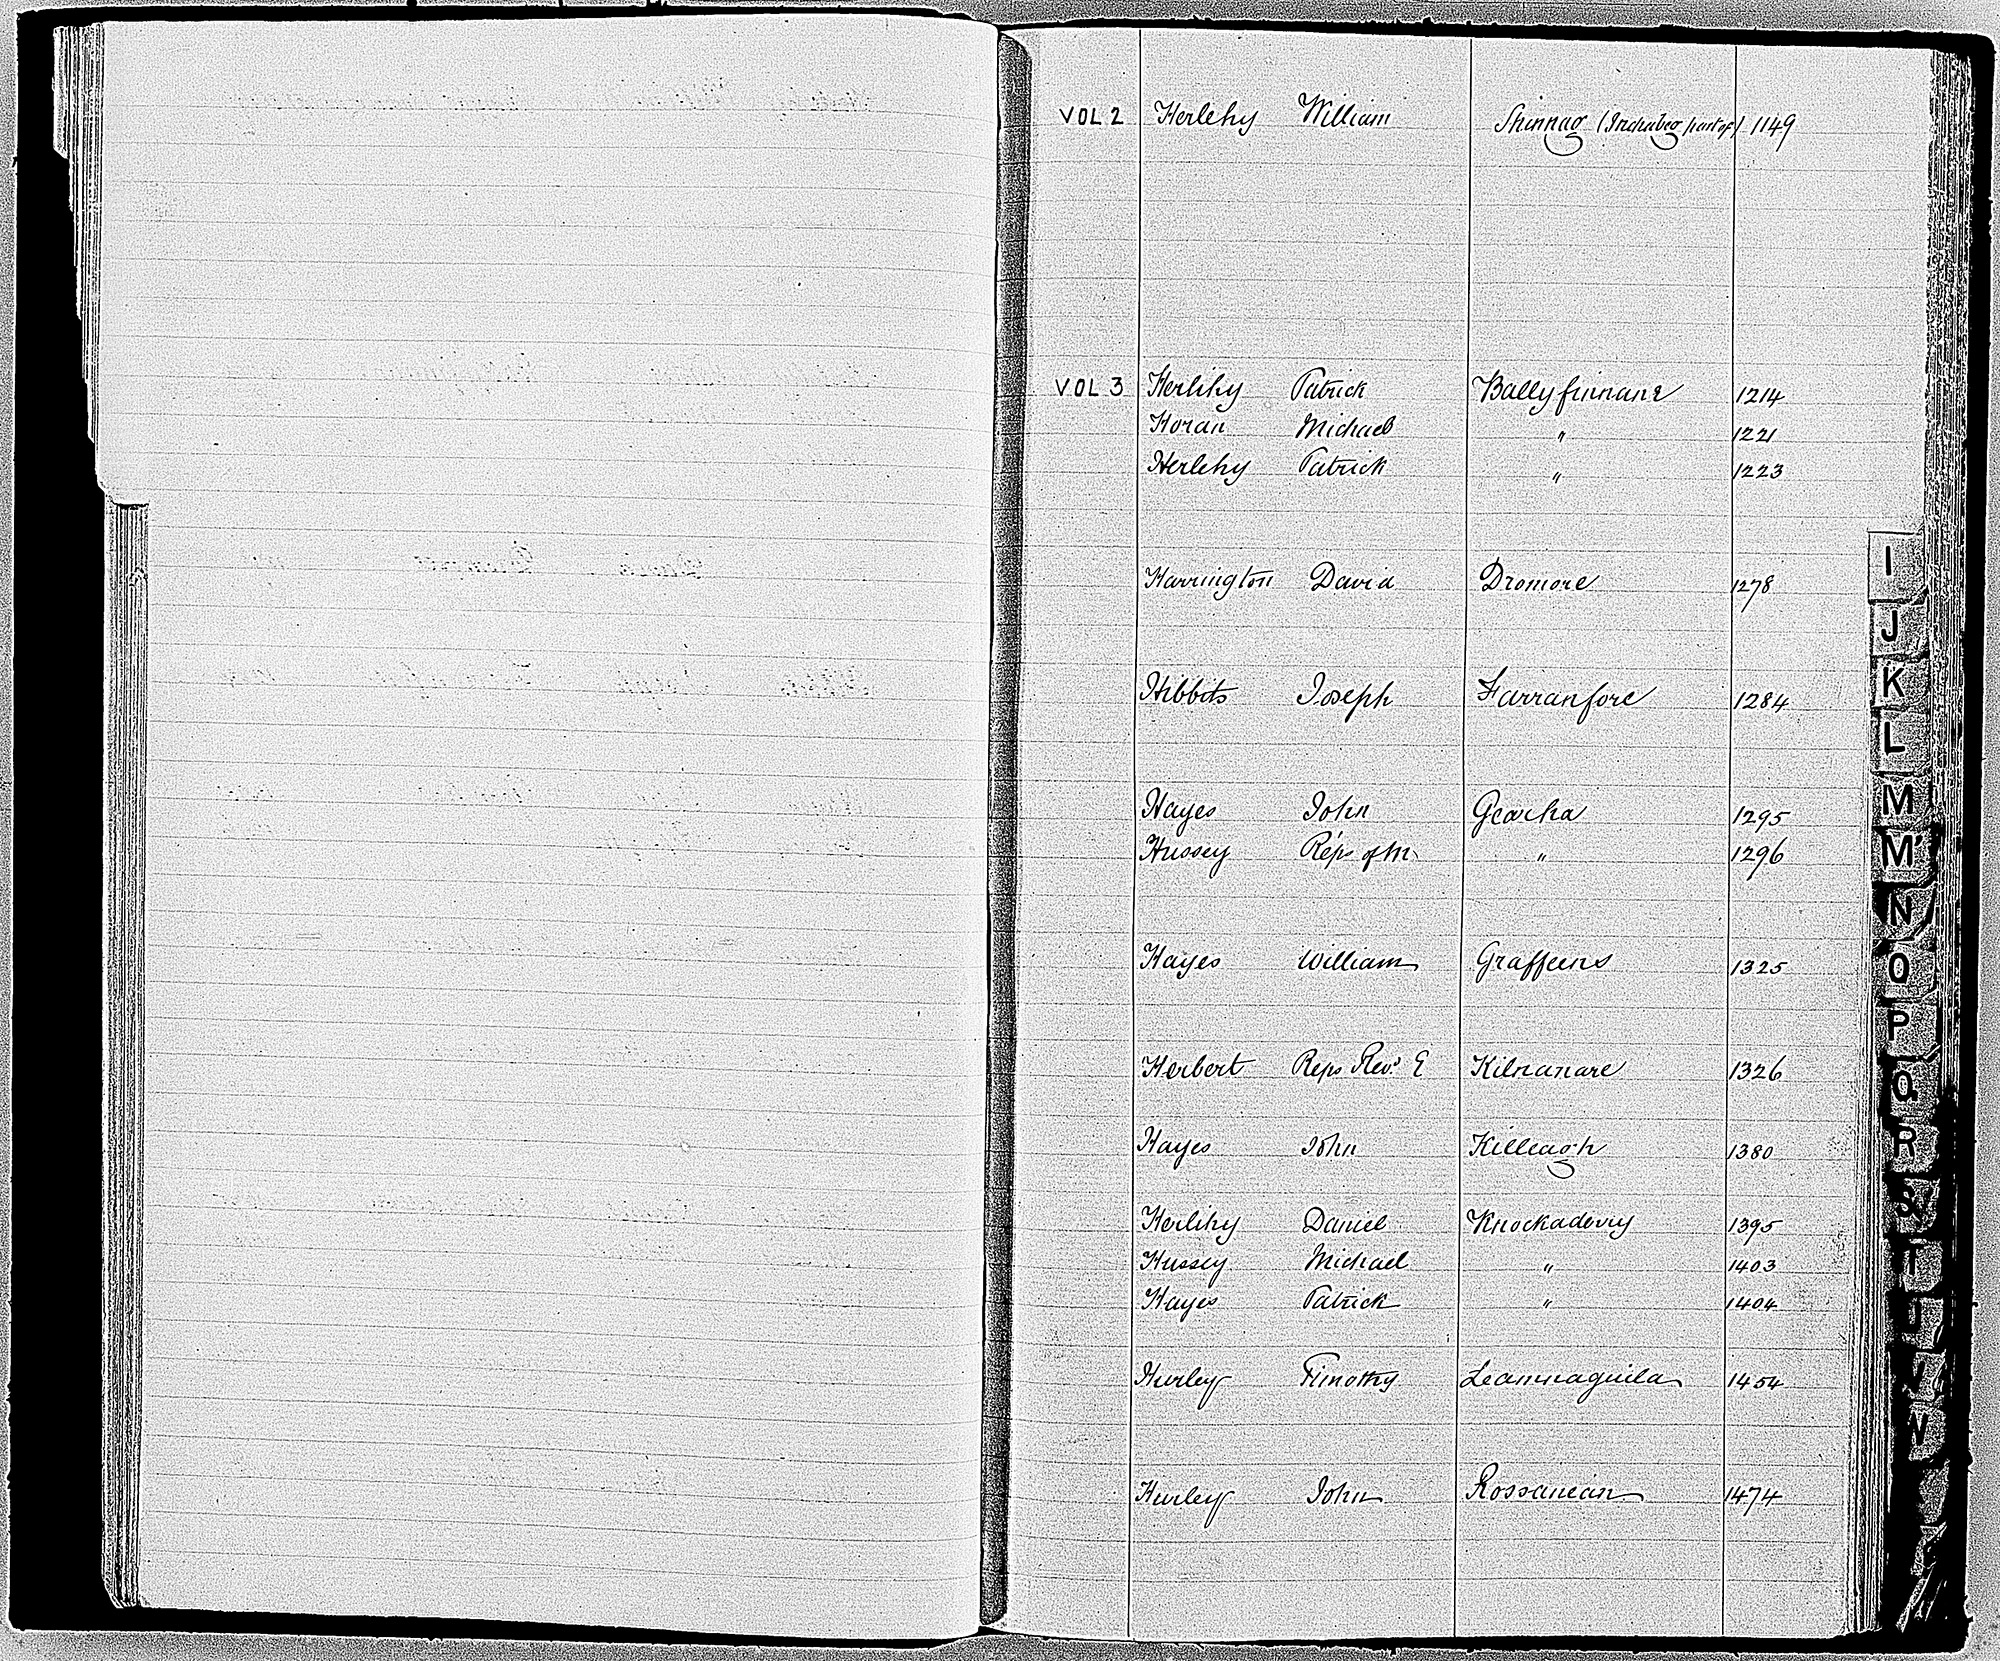 VOL 2 Herlehy William Shinnag (Inchabeg part of) 1149
VOL 3 Herlihy Patrick Ballyfinnane 1214
Horan Michael " 1221
Herlehy Patrick " 1223
Harrington David Dromore 1278
Hibbits Joseph Farranfore 1284
Hayes John Gearha 1295
Hussey Reps of M 1296
Hayes William Graffeens 1325
Herbert Reps Revd E Kilnanare 1326
Hayes John Killeagh 1380
Herlihy Daniel Knockaderry 1395
Hussey Michael " 1403
Hayes Patrick " 1404
Hurley Timothy Leamnaguila 1454
Hurley John Rossanean 1474
I
J
K
L
M
Mc
N
O
P
Q
R
S
T
U
V
W